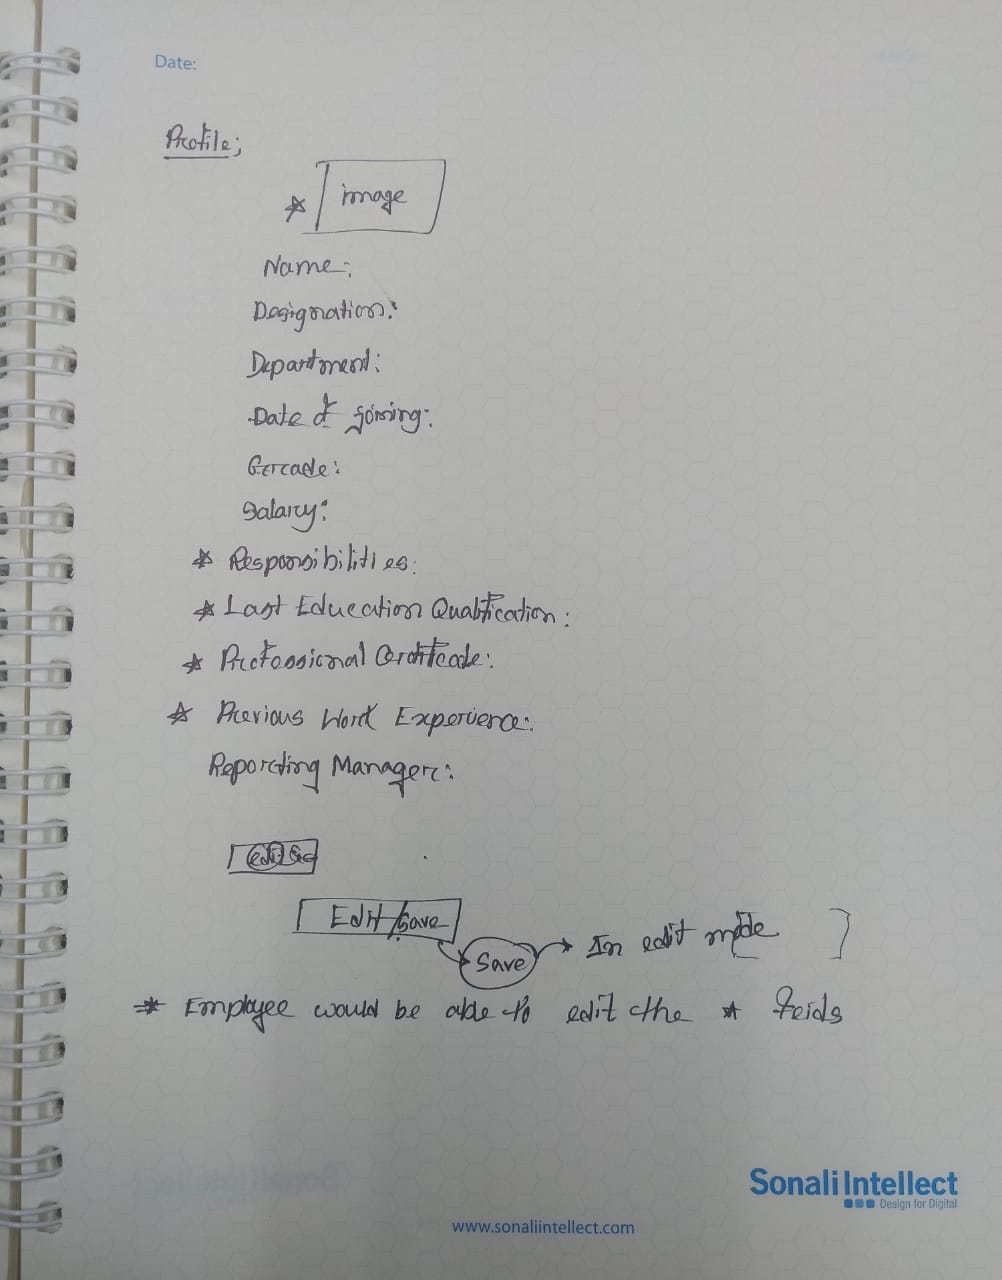 Date:
Profile;
* image
Name:
Designation:
Department:
Date of joining:
Grade:
Salary:
* Responsibilities:
* Last Education Qualification:
* Professional Certificate:
* Previous Work Experience:
Reporting Manager:
edit
Edit/Save
Save → In edit mode [ ]
* Employee would be able to edit the * feids
Sonali Intellect
Design for Digital
www.sonaliintellect.com